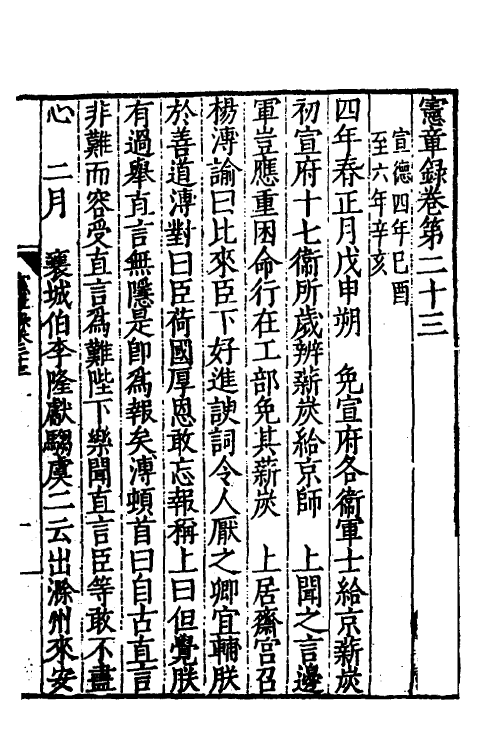 憲章録卷第二十三
宣德四年己酉
至六年辛亥
四年春正月戊申朔　免宣府各衞軍士給京薪炭
初宣府十七衞所歲辨薪炭給京師　上聞之言邊
軍豈應重困命行在工部免其薪炭　上居齋宮召
楊溥諭曰比來臣下好進諛詞令人厭之卿宜輔朕
於善道溥對曰臣荷國厚恩敢忘報稱上曰但覺朕
有過舉直言無隱是卽爲報矣溥頓首曰自古直言
非難而容受直言爲難陛下樂聞直言臣等敢不盡
心　二月　襄城伯李隆獻騶虞二云出滁州來安